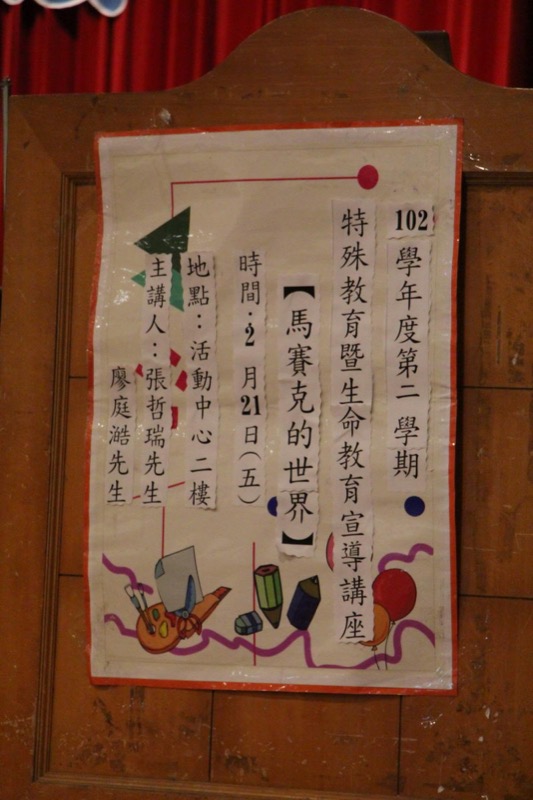 102學年度第二學期
特殊教育暨生命教育宣導講座
【馬賽克的世界】
時間：2月21日(五)
地點：活動中心二樓
主講人：張哲瑞先生
廖庭澔先生